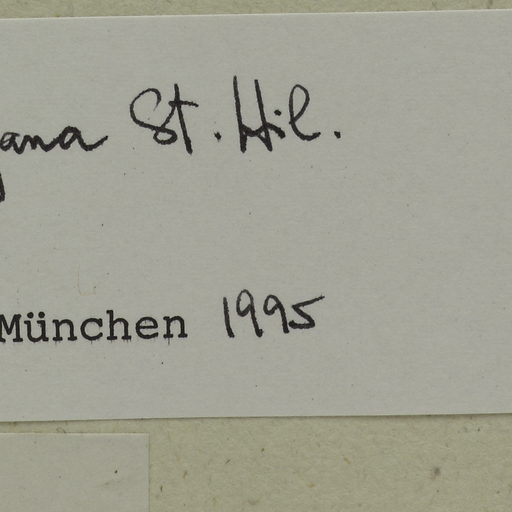 St. Hil.
München 1995